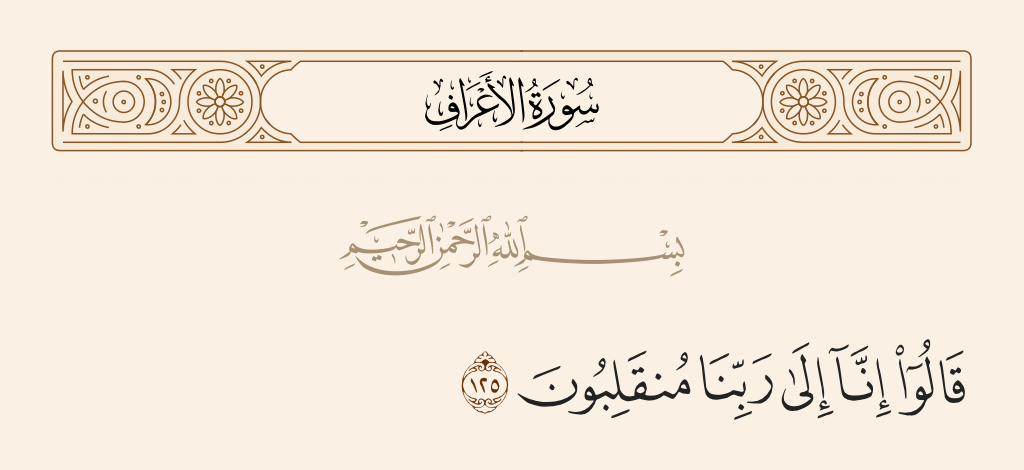 سُورَةُ الأَعْرَافِ
بِسْمِ ٱللَّهِ ٱلرَّحْمَٰنِ ٱلرَّحِيمِ
قَالُوٓا۟ إِنَّآ إِلَىٰ رَبِّنَا مُنقَلِبُونَ ١٢٥